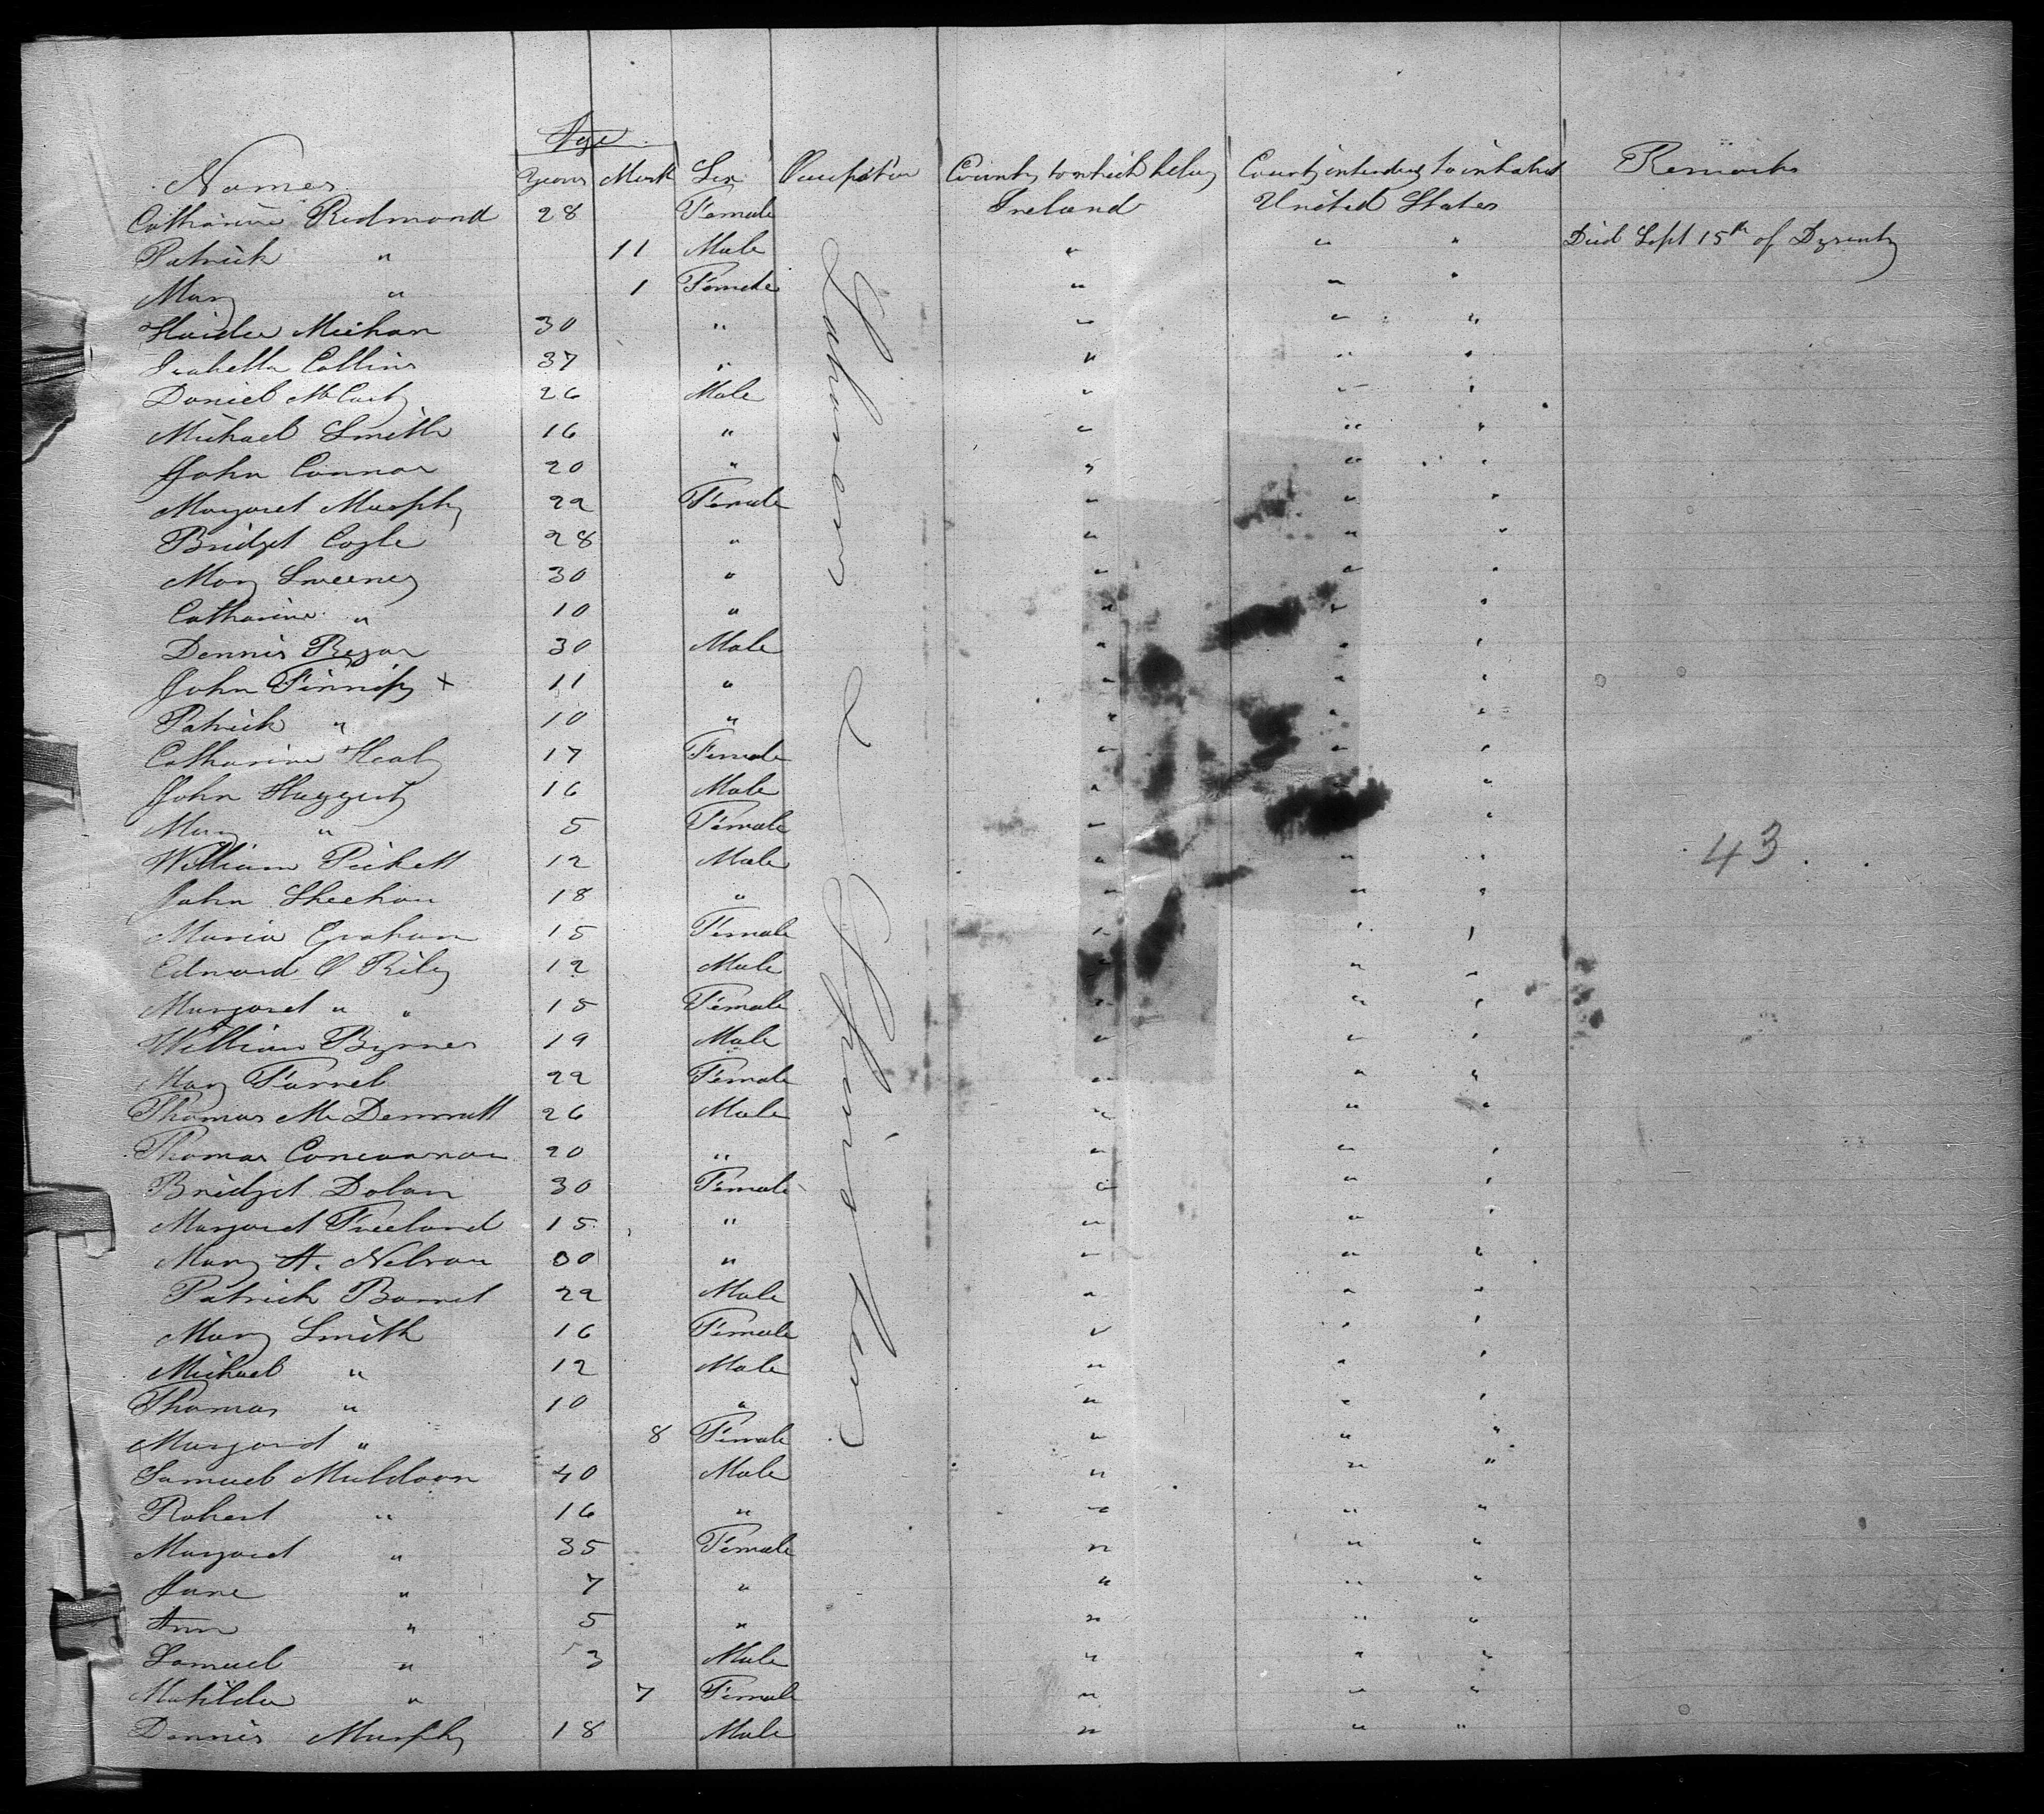 Age
Names Years Month Sex Occupation Country to which belong Country intending to inhabit Remarks
Catharine Redmond 28 Female Ireland United States
Patrick " 11 Male " " " Died Sept 15th of Dysenty
Mary " 1 Female " " "
Michan 30 " " " "
Isabella Collins 37 " " " "
Daniel McCarty 26 Male " " "
Michael Smith 16 " " " "
John Connor 20 " " " "
Margaret Murphy 22 Female " " "
Bridget Cogle 28 " " " "
Mary Sweeney 30 " " " "
Catharine " 10 " " " "
Dennis Regan 30 Male " " "
John x 11 " " " "
Patrick " 10 " " " "
Catharine Healy 17 Female " " "
John Haggerty 16 Male " " "
Mary " 5 Female " "
William Pickett 12 Male " " "
John Sheehan 18 " " " "
Maria Graham 15 Female " " "
Edward O Riley 12 Male " " "
Margaret " " 15 Female " " "
William Byrnes 19 Male " " "
Mary Farrel 22 Female " " "
Thomas McDermott 26 Male " " "
Thomas Concannon 20 " " " "
Bridget Dolan 30 Female " " "
Margaret Freeland 15 " " " "
Mary A. Nelson 30 " " " "
Patrick Barret 22 Male " " "
Mary Smith 16 Female " " "
Michael " 12 Male " " "
Thomas " 10 " " " "
Margaret " 8 Female " " "
Samuel Muldoon 40 Male " " "
Robert " 16 " " " "
Margaret " 35 Female " " "
Jane " 7 " " " "
Ann " 5 " " " "
Samuel " 3 Male " " "
Matilda " 7 Female " " "
Dennis Murphy 18 Male " " "
Laborers &
43